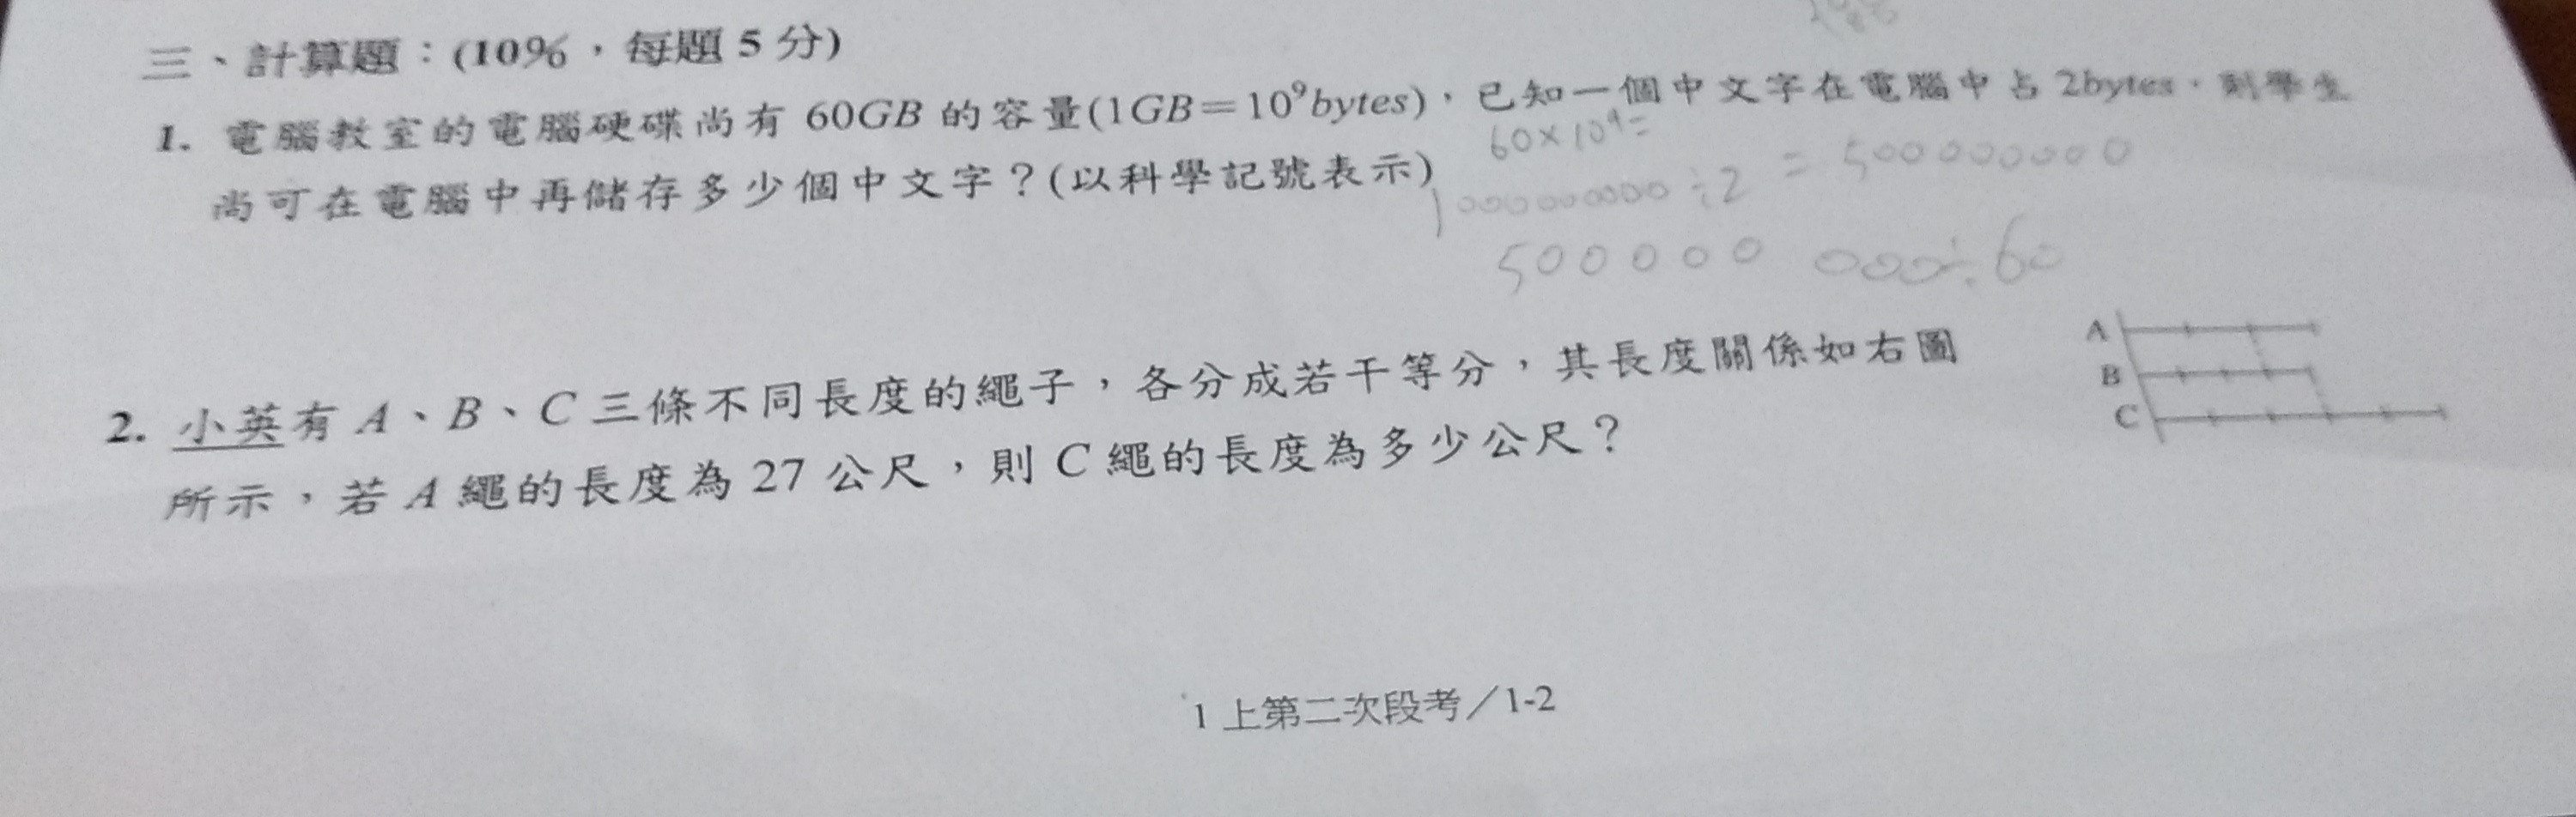 三、計算題：(10%，每題5分)
1. 電腦教室的電腦硬碟尚有 60GB 的容量(1GB＝10⁹bytes)，已知一個中文字在電腦中占 2bytes，則學生
60×10⁹=
尚可在電腦中再儲存多少個中文字？(以科學記號表示)
1000000000÷2 = 500000000
500000 000÷60
2. 小英有 A、B、C 三條不同長度的繩子，各分成若干等分，其長度關係如右圖
所示，若 A 繩的長度為 27 公尺，則 C 繩的長度為多少公尺？
A
B
C
1 上第二次段考／1-2